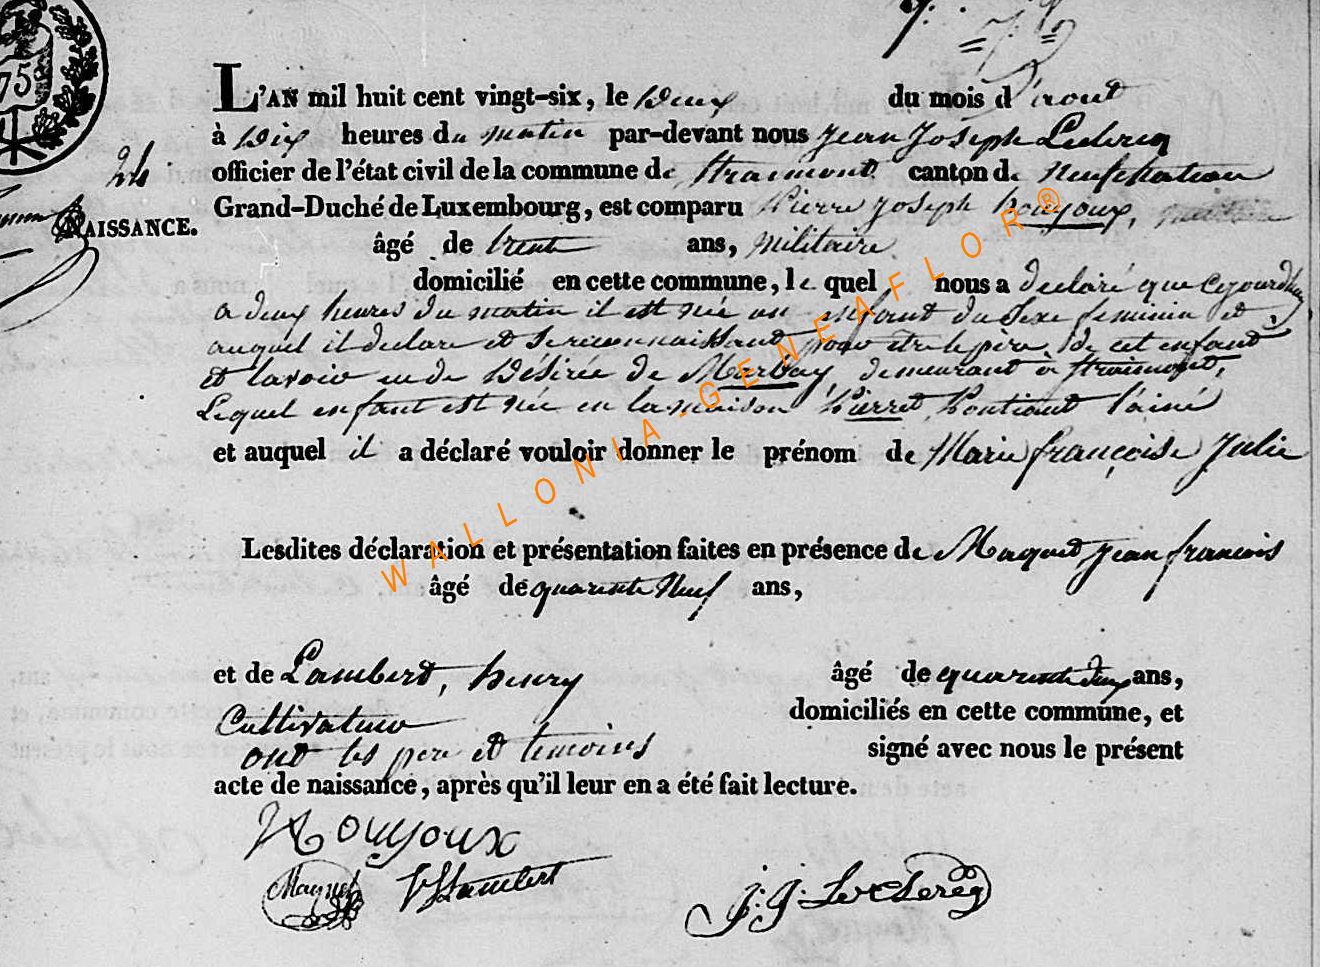 75
24
NAISSANCE.
L'AN mil huit cent vingt-six, le deux du mois d'aout
à dix heures du matin par-devant nous Jean Joseph Leclercq
officier de l'état civil de la commune de Straimont canton de Neufchateau
Grand-Duché de Luxembourg, est comparu Pierre Joseph Houyoux,
âgé de trente ans, militaire
domicilié en cette commune, le quel nous a declaré que cejourdhuy
a deux heures du matin il est née un enfant du sexe feminin et
auquel il declare et se reconnaissant pour etre le pere de cet enfant
et lavoir eu de Désirée de Marbay, demeurant à Straimont,
Lequel enfant est née en la maison Pierret Pontiant l'ainé
et auquel il a déclaré vouloir donner le prénom de Marie françoise Julie
Lesdites déclaration et présentation faites en présence de Maquet Jean francois
âgé de quarente Neuf ans,
et de Lambert, henry âgé de quarente deux ans,
Cultivateur domiciliés en cette commune, et
ont les pere et temoins signé avec nous le présent
acte de naissance, après qu'il leur en a été fait lecture.
Houyoux
Maquet Lambert J: J: Leclercq
WALLONIA-GENEAFLOR®